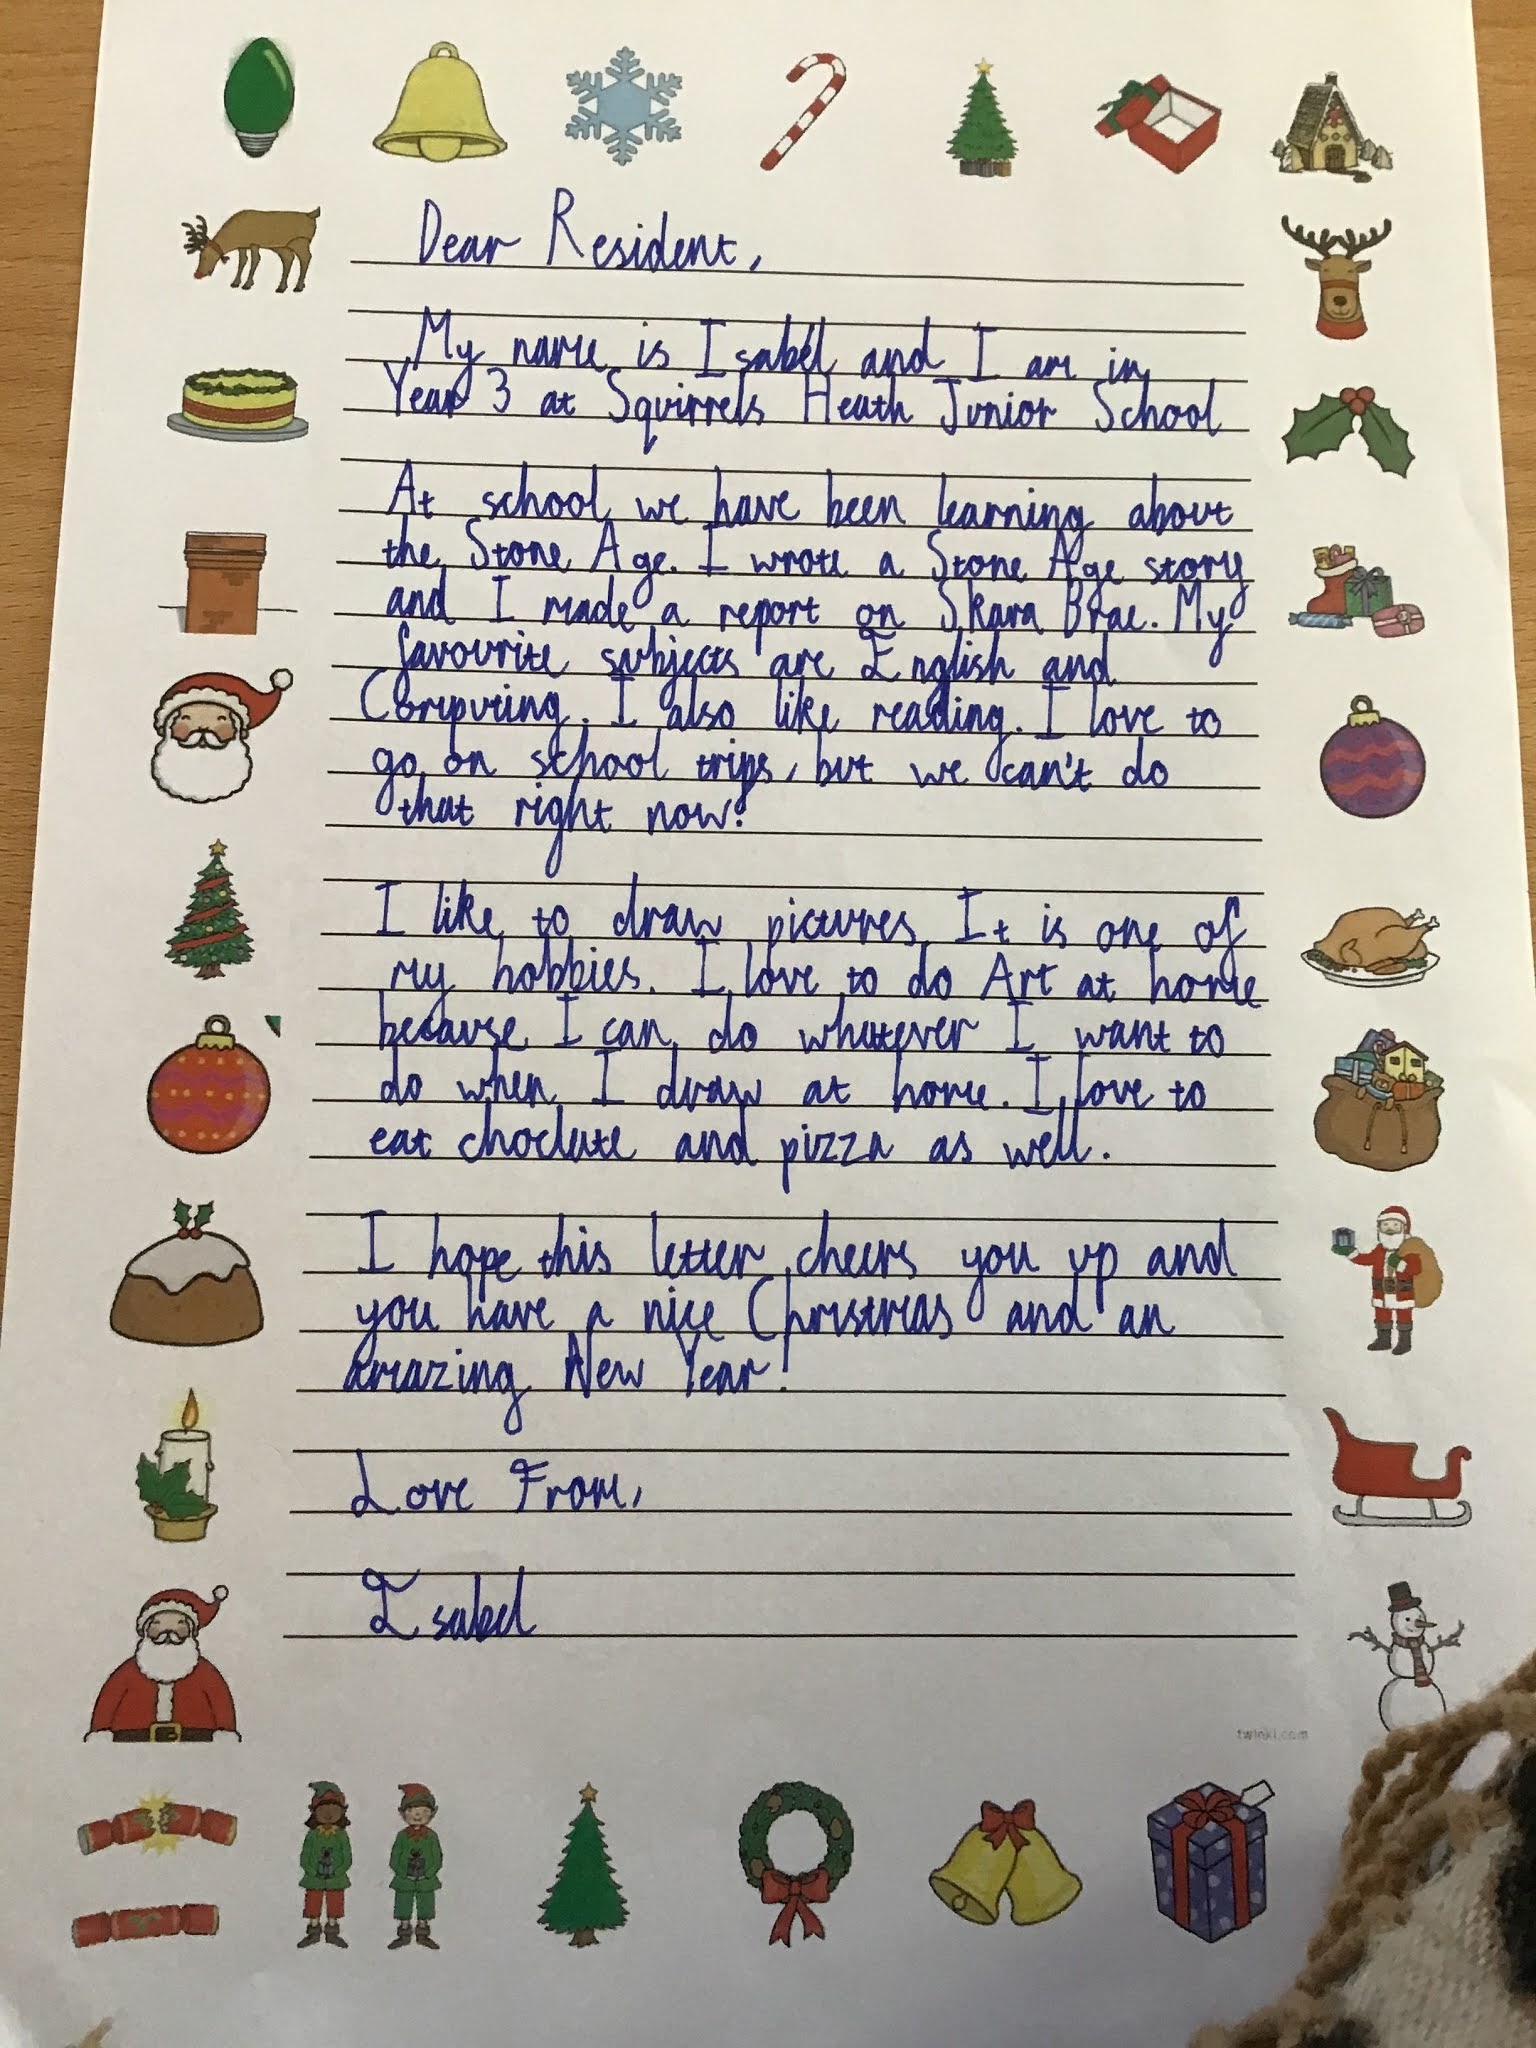 Dear Resident,
My name is Isabel and I am in
Year 3 at Squirrels Heath Junior School
At school we have been learning about
the Stone Age. I wrote a Stone Age story
and I made a report on Skara Brae. My
favourite subjects are English and
Computing. I also like reading. I love to
go on school trips, but we can't do
that right now!
I like to draw pictures. It is one of
my hobbies. I love to do Art at home
because I can do whatever I want to
do when I draw at home. I love to
eat choclate and pizza as well.
I hope this letter cheers you up and
you have a nice Christmas and an
amazing New Year!
Love From,
Isabel
twinkl.com